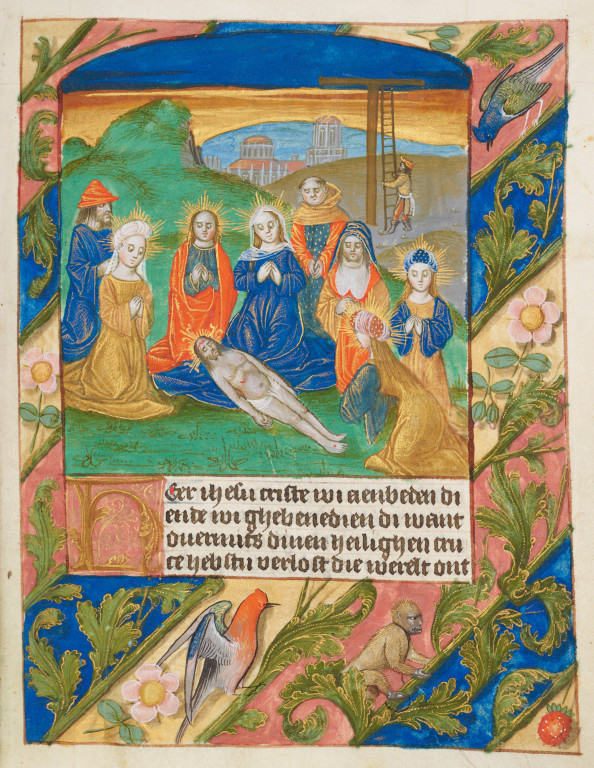 Heer ihesu criste wi aenbeden di
ende wi ghebenedien di want
overmits dinen heilighen cru
ce hebstu verlost die werelt ont